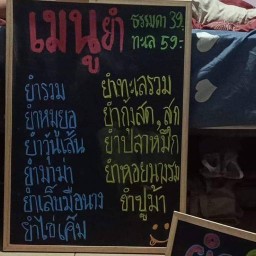 เมนูยำ
ธรรมดา 39.
ทะเล 59.-
ยำรวม
ยำหมูยอ
ยำวุ้นเส้น
ยำมาม่า
ยำเล็บมือนาง
ยำไข่เค็ม
ยำทะเลรวม
ยำกุ้งสด,สุก
ยำปลาหมึก
ยำหอยนางรม
ยำปูม้า